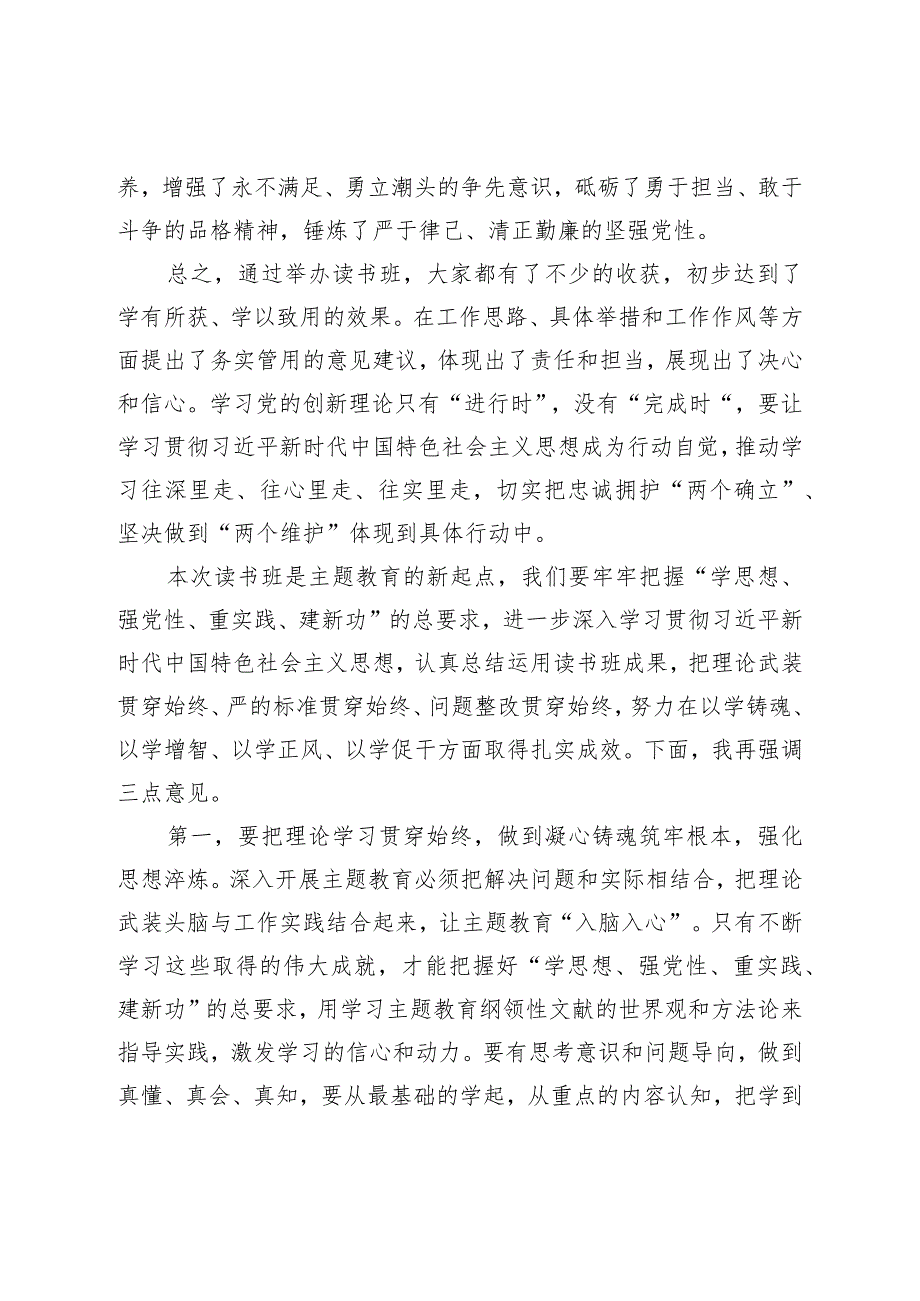 养，增强了永不满足、勇立潮头的争先意识，砥砺了勇于担当、敢于
斗争的品格精神，锤炼了严于律己、清正勤廉的坚强党性。
总之，通过举办读书班，大家都有了不少的收获，初步达到了
学有所获、学以致用的效果。在工作思路、具体举措和工作作风等方
面提出了务实管用的意见建议，体现出了责任和担当，展现出了决心
和信心。学习党的创新理论只有“进行时”，没有“完成时“，要让
学习贯彻习近平新时代中国特色社会主义思想成为行动自觉，推动学
习往深里走、往心里走、往实里走，切实把忠诚拥护“两个确立”、
坚决做到“两个维护”体现到具体行动中。
本次读书班是主题教育的新起点，我们要牢牢把握“学思想、
强党性、重实践、建新功”的总要求，进一步深入学习贯彻习近平新
时代中国特色社会主义思想，认真总结运用读书班成果，把理论武装
贯穿始终、严的标准贯穿始终、问题整改贯穿始终，努力在以学铸魂、
以学增智、以学正风、以学促干方面取得扎实成效。下面，我再强调
三点意见。
第一，要把理论学习贯穿始终，做到凝心铸魂筑牢根本，强化
思想淬炼。深入开展主题教育必须把解决问题和实际相结合，把理论
武装头脑与工作实践结合起来，让主题教育“入脑入心”。只有不断
学习这些取得的伟大成就，才能把握好“学思想、强党性、重实践、
建新功”的总要求，用学习主题教育纲领性文献的世界观和方法论来
指导实践，激发学习的信心和动力。要有思考意识和问题导向，做到
真懂、真会、真知，要从最基础的学起，从重点的内容认知，把学到